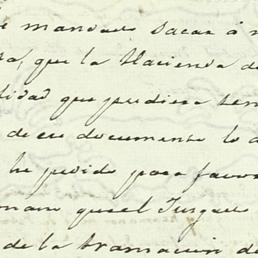 e mandado sacar á
que la Hacienda de
lidad que pudiera ten
de ese documento lo a
he pedido para favor
que el Juzgado
de la tramacion de